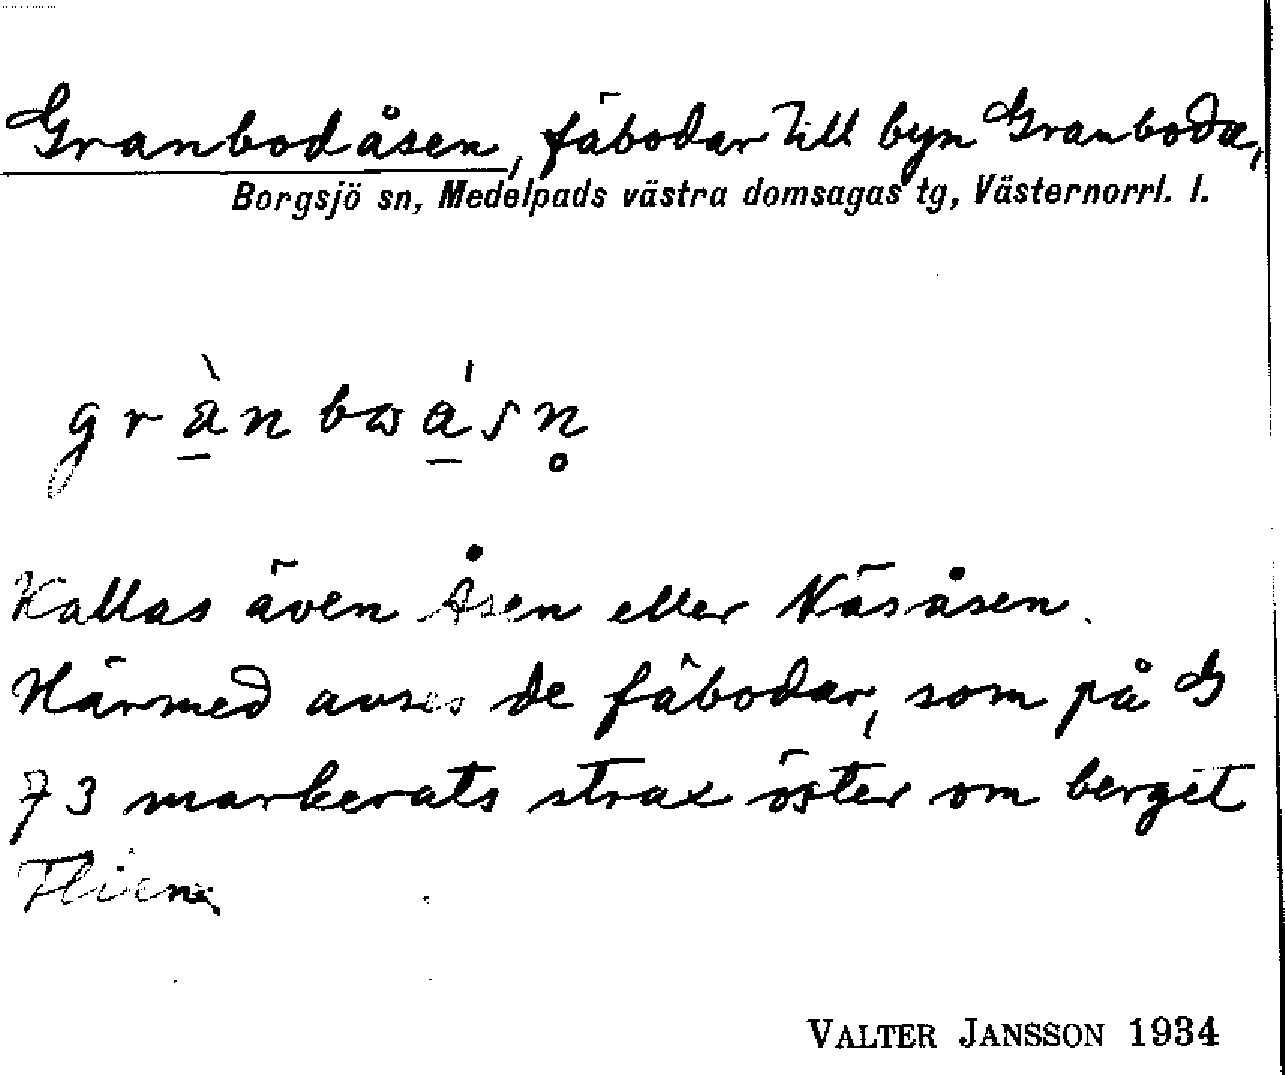 Granbodåsen, fäbodar till byn Granboda,
Borgsjö sn, Medelpads västra domsagas tg, Västernorrl. l.
grà̱nbωá̱sn̥
Kallas även Åsen eller Näsåsen.
Härmed avses de fäbodar, som på G
73 markerats strax öster om berget
Flien.
VALTER JANSSON 1934